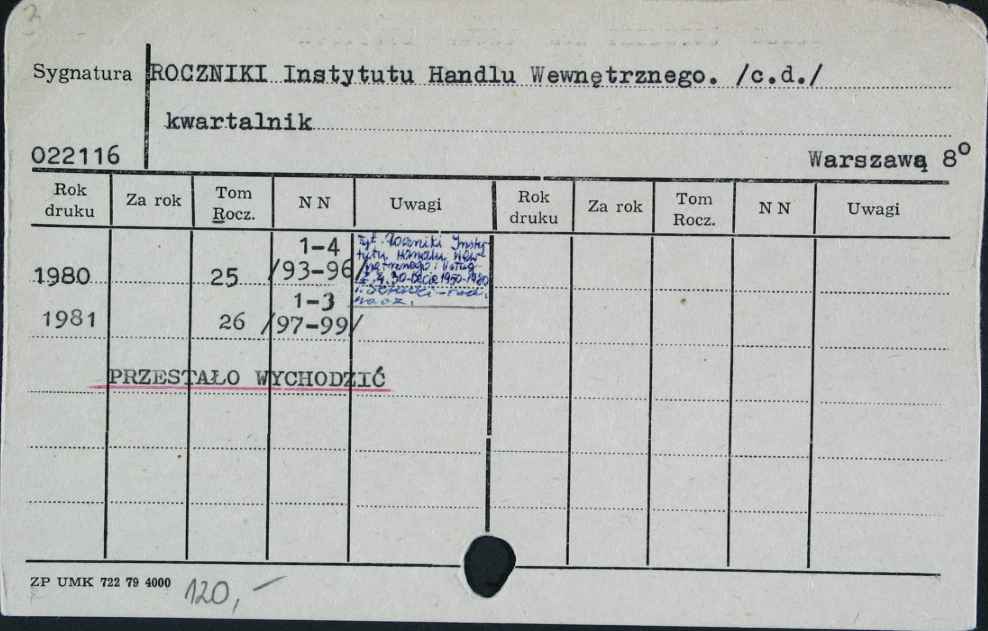 3
Sygnatura ROCZNIKI Instytutu Handlu Wewnętrznego. /c.d./
kwartalnik
022116 Warszawa 8°
Rok druku Za rok Tom Rocz. N N Uwagi Rok druku Za rok Tom Rocz. N N Uwagi
1980 25 1-4 /93-96/
Tyt. Roczniki Insty-
tutu Handlu Wew-
nętrznego i Usług
z. 4. 30-lecie 1950-1980
1981 26 1-3 /97-99/
PRZESTAŁO WYCHODZIĆ
ZP UMK 722 79 4000 120,-